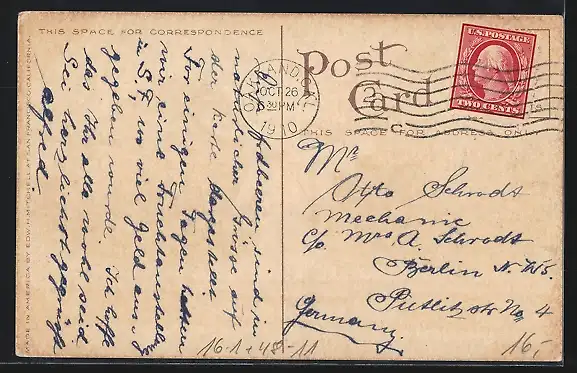 THIS SPACE FOR CORRESPONDENCE
Die Erdbeeren sind in
natürlicher Grösse auf
der Karte dargestellt
Vor einigen Tagen hatten
wir eine Fruchtausstellung
in S.F. wo viel Geld aus-
gegeben wurde. Ich hoffe
das Ihr alle wohl seid
Sei herzlichst gegrüsst
Alfred.
MADE IN AMERICA BY EDW. H. MITCHELL AT SAN FRANCISCO, CALIFORNIA.
Post
Card
THIS SPACE FOR ADDRESS ONLY
OAKLAND, CAL.
OCT 26
30 PM
1910
2
U.S. POSTAGE
TWO CENTS
Mr
Otto Schrodt
Mechanic
c/o Mrs A. Schrodt
Berlin N.W5.
Putlitzstr No 4
Germany.
16-1+48-11
16,-